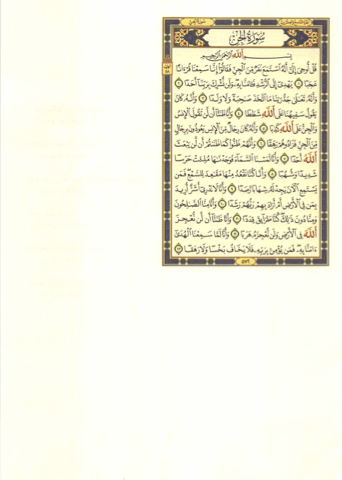 سُورَةُ الجِنِّ
بِسْمِ اللَّهِ الرَّحْمَٰنِ الرَّحِيمِ
قُلْ أُوحِيَ إِلَيَّ أَنَّهُ اسْتَمَعَ نَفَرٌ مِّنَ الْجِنِّ فَقَالُوا إِنَّا سَمِعْنَا قُرْءَانًا
عَجَبًا ١ يَهْدِي إِلَى الرُّشْدِ فَـَٔامَنَّا بِهِ وَلَن نُّشْرِكَ بِرَبِّنَا أَحَدًا ٢
وَأَنَّهُ تَعَالَىٰ جَدُّ رَبِّنَا مَا اتَّخَذَ صَاحِبَةً وَلَا وَلَدًا ٣ وَأَنَّهُ كَانَ
يَقُولُ سَفِيهُنَا عَلَى اللَّهِ شَطَطًا ٤ وَأَنَّا ظَنَنَّا أَن لَّن تَقُولَ الْإِنسُ
وَالْجِنُّ عَلَى اللَّهِ كَذِبًا ٥ وَأَنَّهُ كَانَ رِجَالٌ مِّنَ الْإِنسِ يَعُوذُونَ بِرِجَالٍ
مِّنَ الْجِنِّ فَزَادُوهُمْ رَهَقًا ٦ وَأَنَّهُمْ ظَنُّوا كَمَا ظَنَنتُمْ أَن لَّن يَبْعَثَ
اللَّهُ أَحَدًا ٧ وَأَنَّا لَمَسْنَا السَّمَاءَ فَوَجَدْنَاهَا مُلِئَتْ حَرَسًا
شَدِيدًا وَشُهُبًا ٨ وَأَنَّا كُنَّا نَقْعُدُ مِنْهَا مَقَاعِدَ لِلسَّمْعِ فَمَن
يَسْتَمِعِ الْآنَ يَجِدْ لَهُ شِهَابًا رَّصَدًا ٩ وَأَنَّا لَا نَدْرِي أَشَرٌّ أُرِيدَ
بِمَن فِي الْأَرْضِ أَمْ أَرَادَ بِهِمْ رَبُّهُمْ رَشَدًا ١٠ وَأَنَّا مِنَّا الصَّالِحُونَ
وَمِنَّا دُونَ ذَٰلِكَ كُنَّا طَرَائِقَ قِدَدًا ١١ وَأَنَّا ظَنَنَّا أَن لَّن نُّعْجِزَ
اللَّهَ فِي الْأَرْضِ وَلَن نُّعْجِزَهُ هَرَبًا ١٢ وَأَنَّا لَمَّا سَمِعْنَا الْهُدَىٰ
ءَامَنَّا بِهِ فَمَن يُؤْمِن بِرَبِّهِ فَلَا يَخَافُ بَخْسًا وَلَا رَهَقًا ١٣
٥٧٢